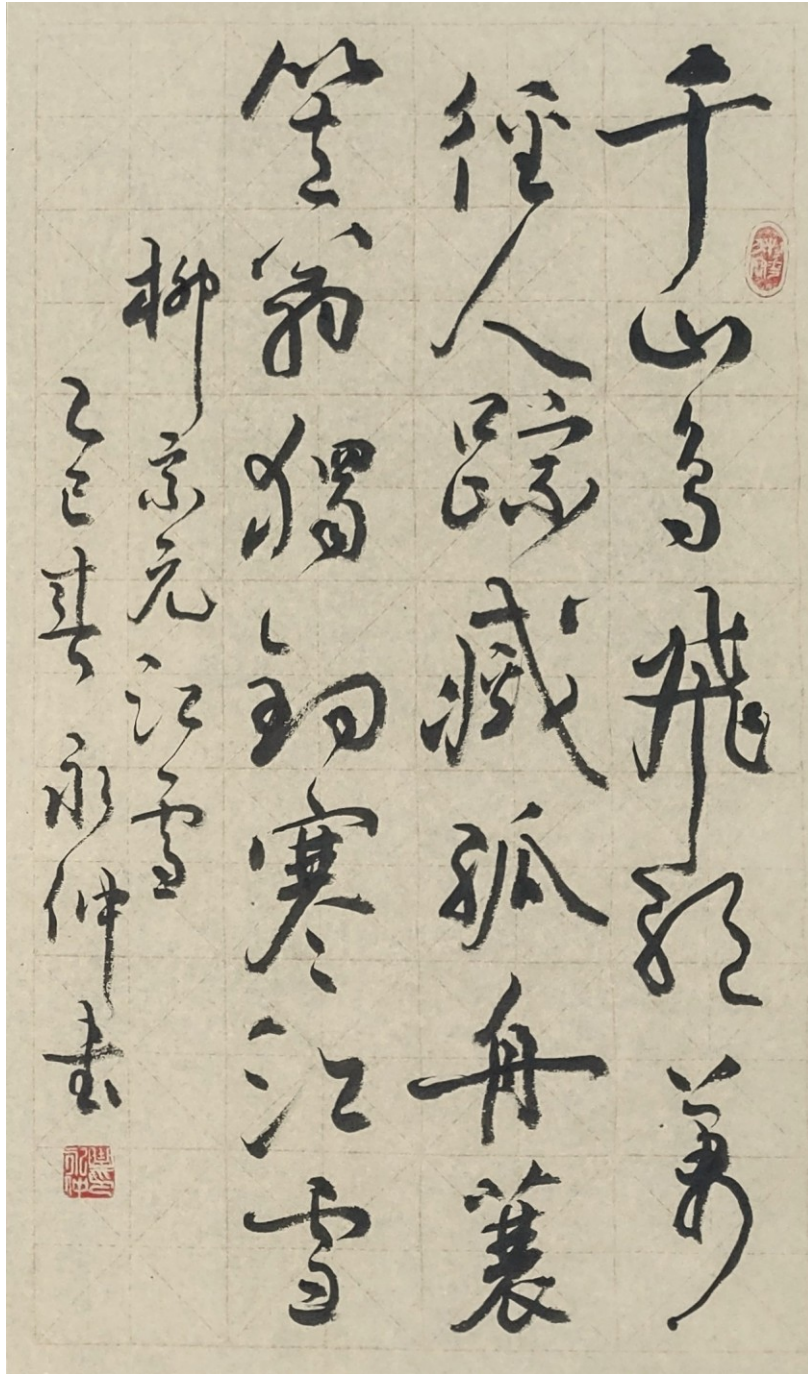 千山鳥飛絕萬
徑人踪滅孤舟蓑
笠翁獨釣寒江雪
柳宗元江雪
乙巳春 永仲書